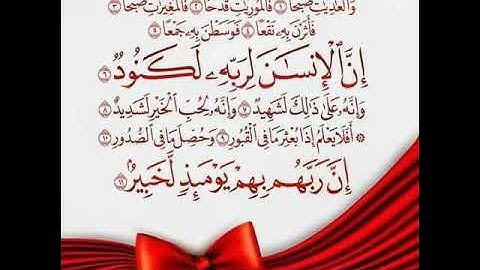 وَالْعَٰدِيَٰتِ ضَبْحًا ١ فَالْمُورِيَٰتِ قَدْحًا ٢ فَالْمُغِيرَٰتِ صُبْحًا ٣
فَأَثَرْنَ بِهِۦ نَقْعًا ٤ فَوَسَطْنَ بِهِۦ جَمْعًا ٥
إِنَّ الْإِنسَٰنَ لِرَبِّهِۦ لَكَنُودٌ ٦
وَإِنَّهُۥ عَلَىٰ ذَٰلِكَ لَشَهِيدٌ ٧ وَإِنَّهُۥ لِحُبِّ الْخَيْرِ لَشَدِيدٌ ٨
۞ أَفَلَا يَعْلَمُ إِذَا بُعْثِرَ مَا فِي الْقُبُورِ ٩ وَحُصِّلَ مَا فِي الصُّدُورِ ١٠
إِنَّ رَبَّهُم بِهِمْ يَوْمَئِذٍ لَّخَبِيرٌ ١١